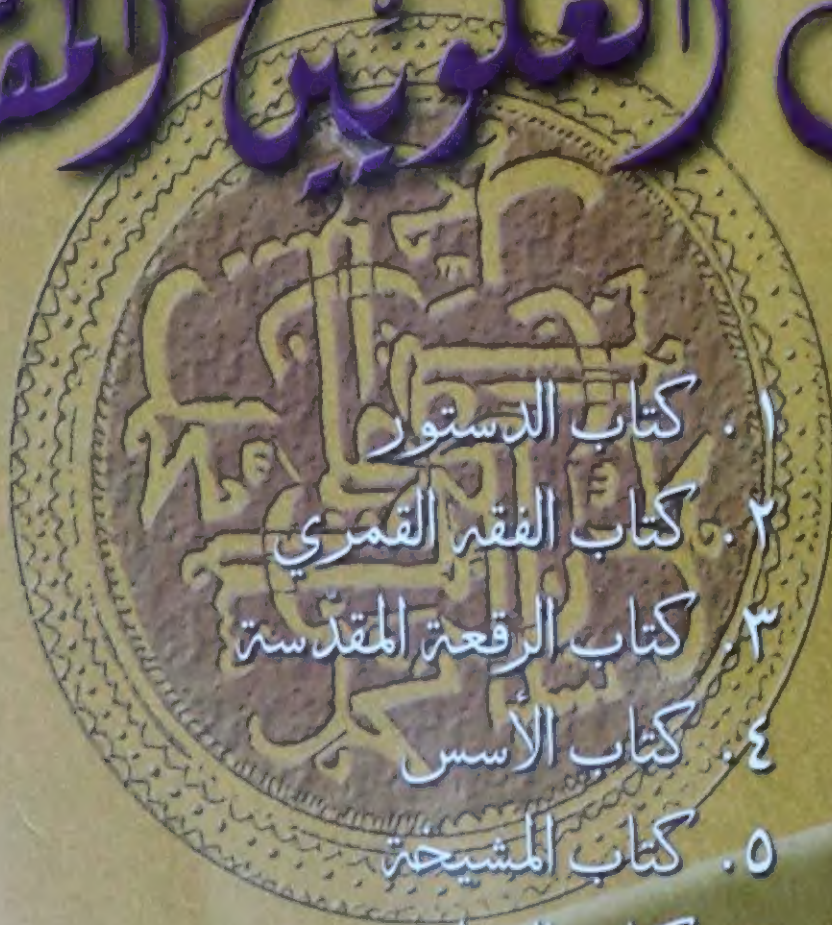 العلويين
١. كتاب الدستور
٢. كتاب الفقه القمري
٣. كتاب الرقعة المقدّسة
٤. كتاب الأسس
٥. كتاب المشيخة